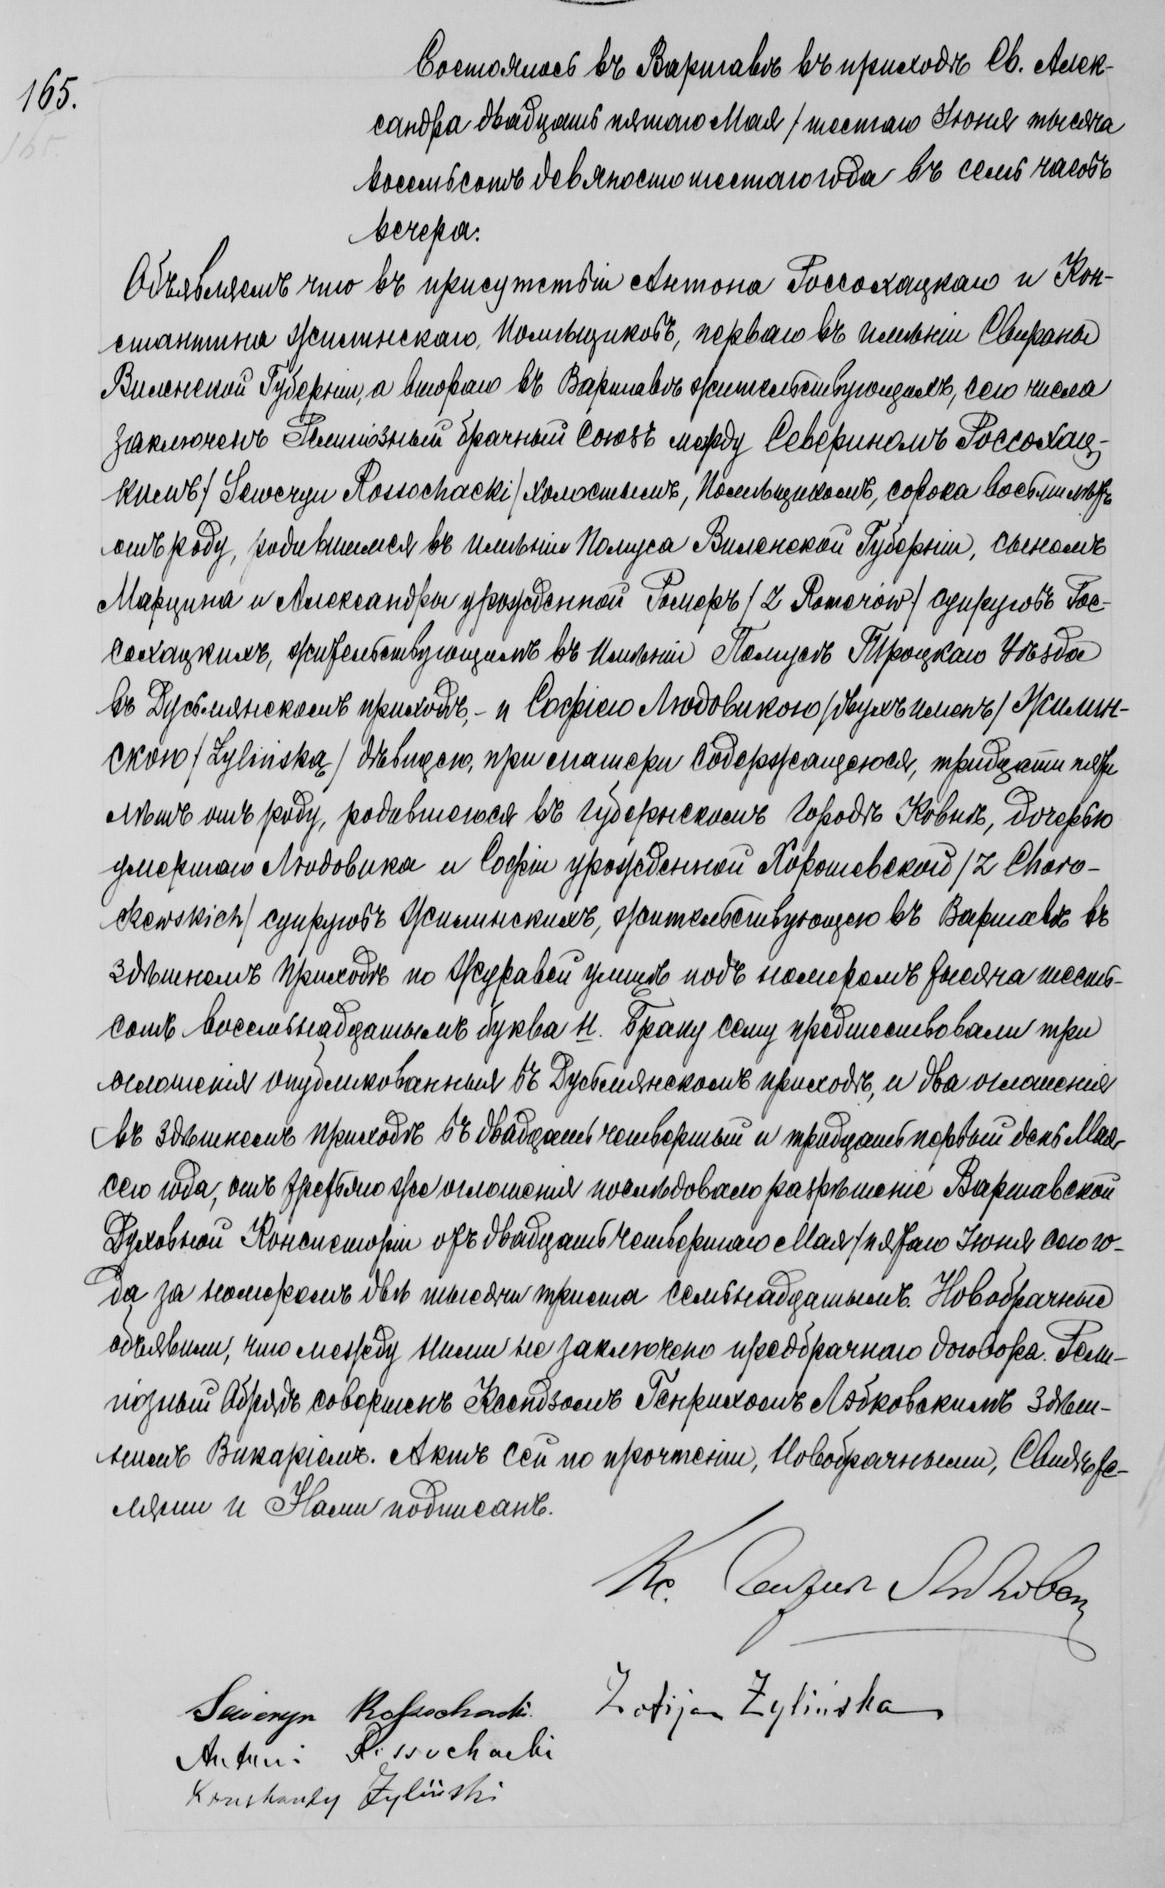 Состоялось въ Варшавѣ въ приходѣ Св. Алек-
165.
сандра двадцать пятаго Мая / шестаго Іюня тысяча
165.
восемьсотъ девяносто шестаго года въ семь часовъ
вечера.
Объявляемъ что въ присутствіи Антона Россохацкаго и Кон-
стантина Жилинскаго, Помѣщиковъ, перваго въ имѣніи Свираны
Виленской Губерніи, а втораго въ Варшавѣ жительствующихъ, сего числа
заключенъ Религіозный брачный союзъ между Севериномъ Россохац-
кимъ / Seweryn Rossochacki / холостымъ, Помѣщикомъ, сорока восьми лѣтъ
отъ роду, родившимся въ имѣніи Полуса Виленской Губерніи, сыномъ
Марцина и Александры урожденной Ромеръ / z Romerów / супруговъ Рос-
сохацкихъ, жительствующимъ въ Имѣніи Полусѣ Троцкаго Уѣзда
въ Дусьмянскомъ приходѣ, - и Софіею Людовикою / двухъ именъ / Жилин-
скою / Żylińską / дѣвицею, при матери содержащеюся, тридцати пяти
лѣтъ отъ роду, родившеюся въ Губернскомъ Городѣ Ковнѣ, дочерью
умершаго Людовика и Софіи урожденной Хорошевской / z Choro-
szewskich / супруговъ Жилинскихъ, жительствующею въ Варшавѣ въ
здѣшнемъ приходѣ по Журавей улицѣ подъ номеромъ тысяча шесть-
сотъ восемьнадцатымъ буква Н. Браку сему предшествовали три
оглашенія опубликованныя въ Дусьмянскомъ приходѣ, и два оглашенія
въ здѣшнемъ приходѣ въ двадцать четвертый и тридцать первый день Мая
сего года, отъ третьяго же оглашенія послѣдовало разрѣшеніе Варшавской
Духовной Консисторіи отъ двадцать четвертаго Мая / пятаго Іюня сего го-
да за номеромъ двѣ тысячи триста семьнадцатымъ. Новобрачные
объявили, что между ними не заключено предбрачнаго договора. Рели-
гіозный Обрядъ совершенъ Ксендзомъ Генрихомъ Любковскимъ здѣш-
нимъ Викаріемъ. Актъ сей по прочтеніи, Новобрачными, Свидѣте-
лями и Нами подписанъ.
Кс.
Seweryn Rossochacki. Zofija Żylińska
Antoni Rossochacki
Konstanty Żyliński